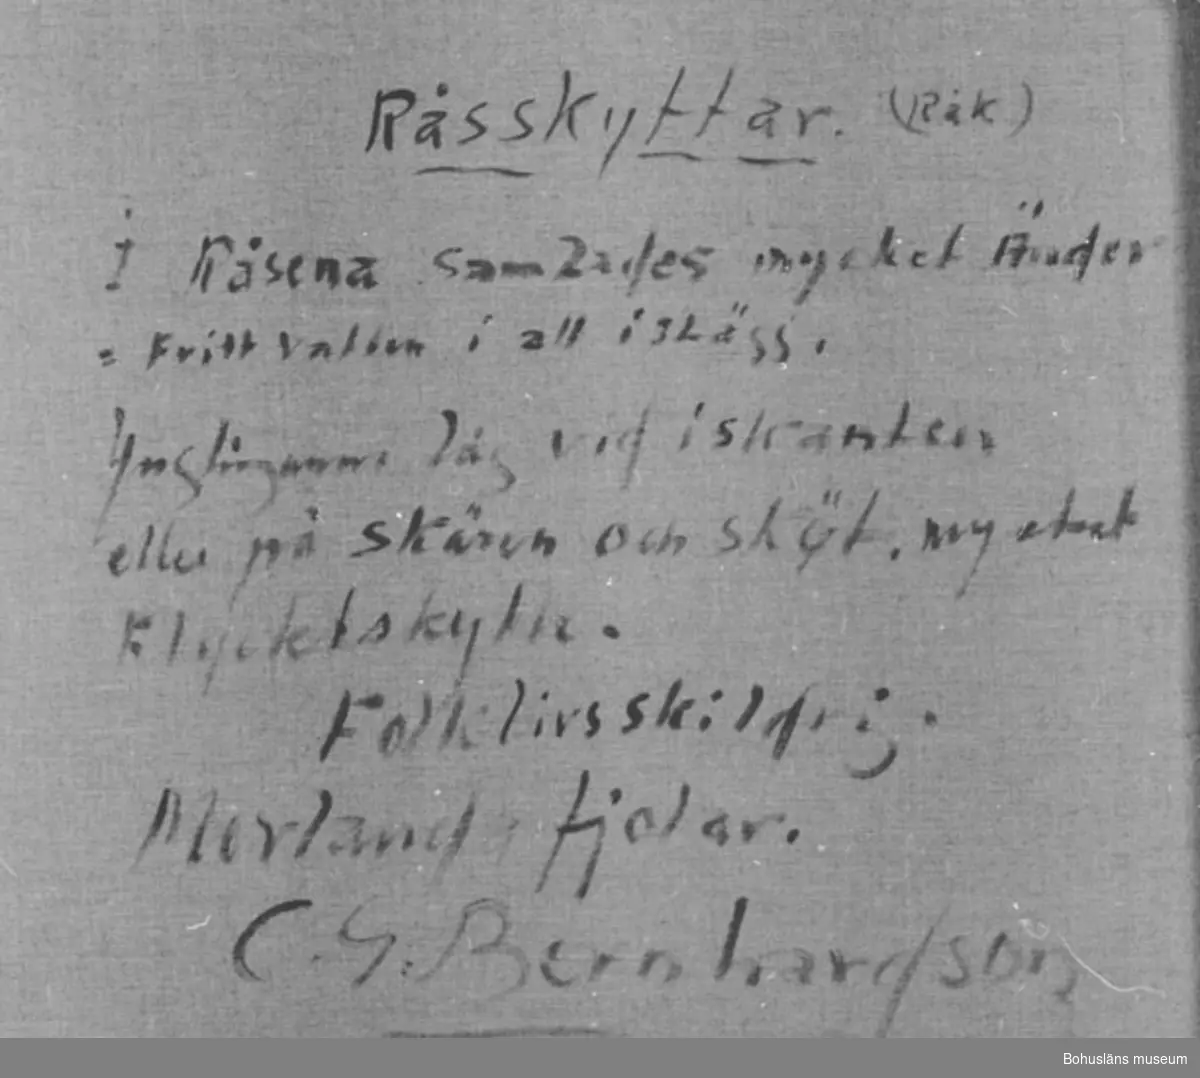 Råsskyttar. (Råk)
I Råsena samlades mycket Änder
= Fritt vatten i allt isläggs.
Ynglingarna låg vid iskanten
eller på skären och sköt. mycket
Flycktskytte.
Folklivsskildring.
Morlands fjolar.
C.G. Bernhardson
Bohusläns museum